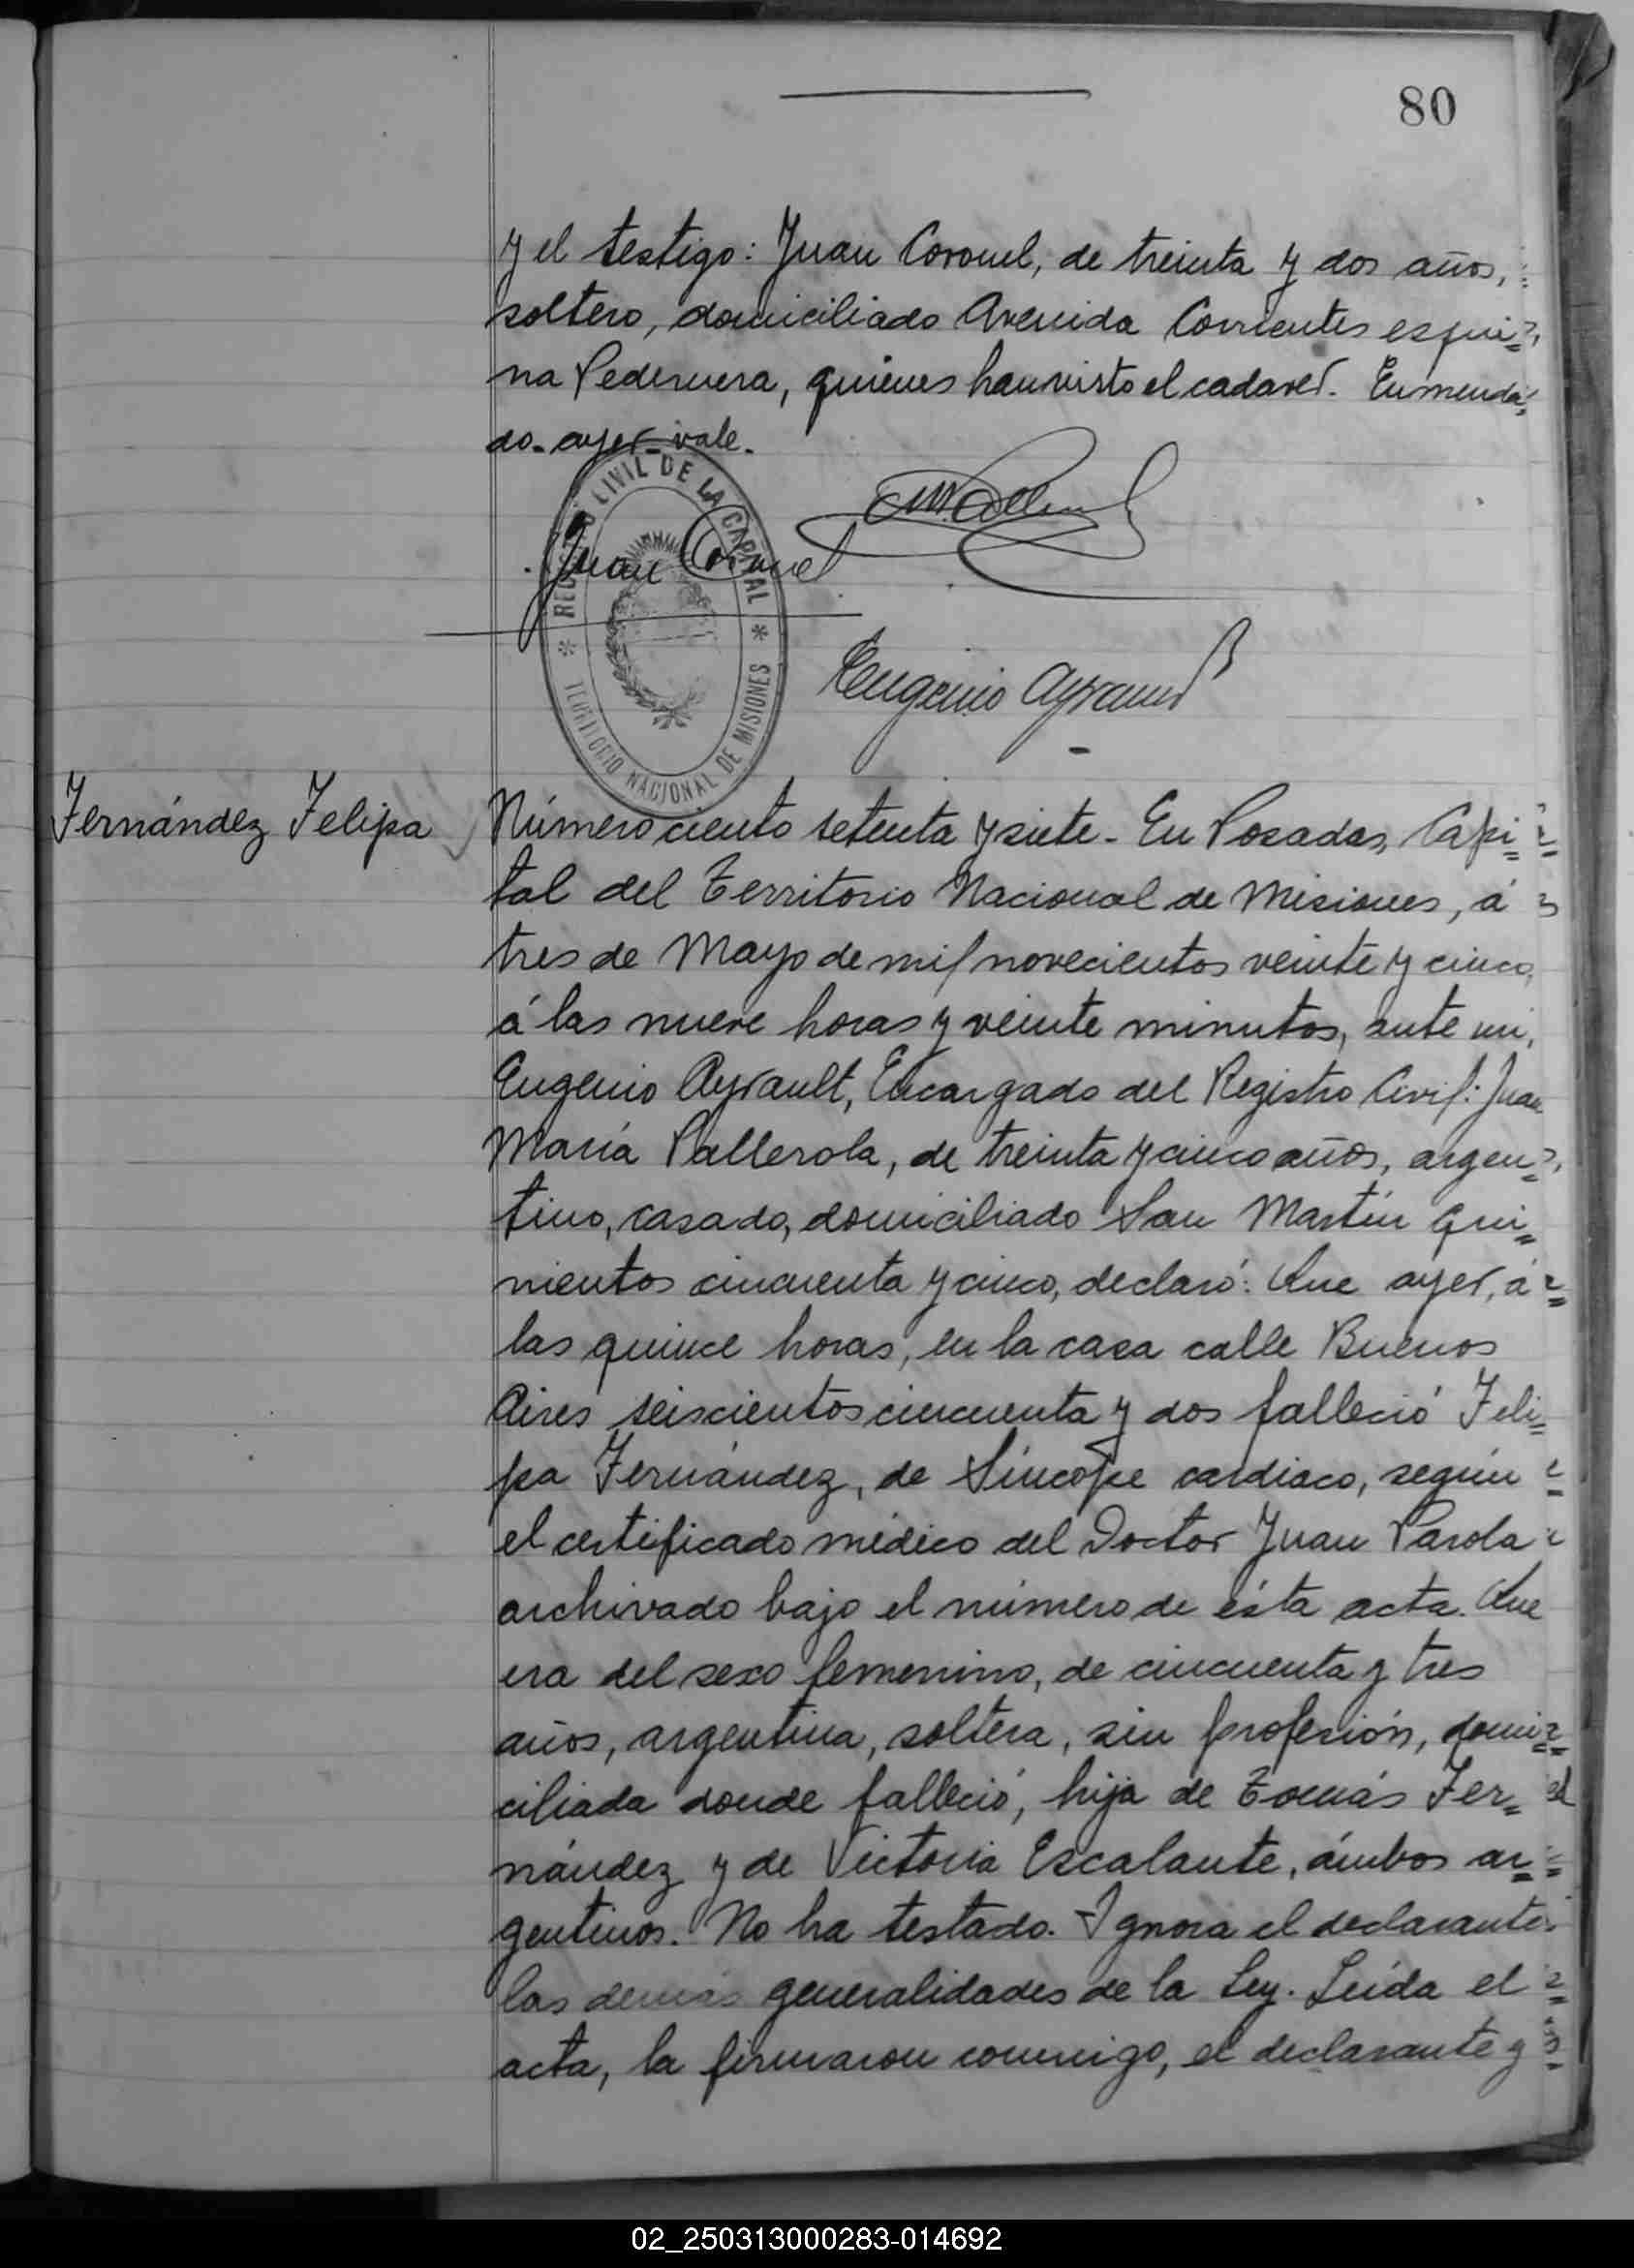 80
y el testigo: Juan Coronel, de treinta y dos años,
soltero, domiciliado Avenida Corrientes esqui=
na Pedernera, quiénes han visto el cadaver. Enmenda=
do-ayer-vale-
REGISTRO CIVIL DE LA CAPITAL
* TERRITORIO NACIONAL DE MISIONES *
Juan Coronel
Eugenio Ayrault
Fernández Felipa
Número ciento setenta y siete - En Posadas, Capi=
tal del Territorio Nacional de Misiones, á
tres de Mayo de mil novecientos veinte y cinco,
á las nueve horas y veinte minutos, ante mi,
Eugenio Ayrault, Encargado del Registro Civil: Juan
María Pallerola, de treinta y cinco años, argen=
tino, casado, domiciliado San Martín qui=
nientos cincuenta y cinco, declaró: Que ayer, á
las quince horas, en la casa calle Buenos
Aires seiscientos cincuenta y dos falleció Feli=
pa Fernández, de Síncope cardiaco, según
el certificado médico del Doctor Juan Parola
archivado bajo el número de ésta acta. Que
era del sexo femenino, de cincuenta y tres
años, argentina, soltera, sin profesión, domi=
ciliada donde falleció, hija de Tomás Fer=
nández y de Victoria Escalante, ámbos ar=
gentinos. No ha testado. Ignora el declarante
las demás generalidades de la Ley. Leída el
acta, la firmaron conmigo, el declarante y
02_250313000283-014692